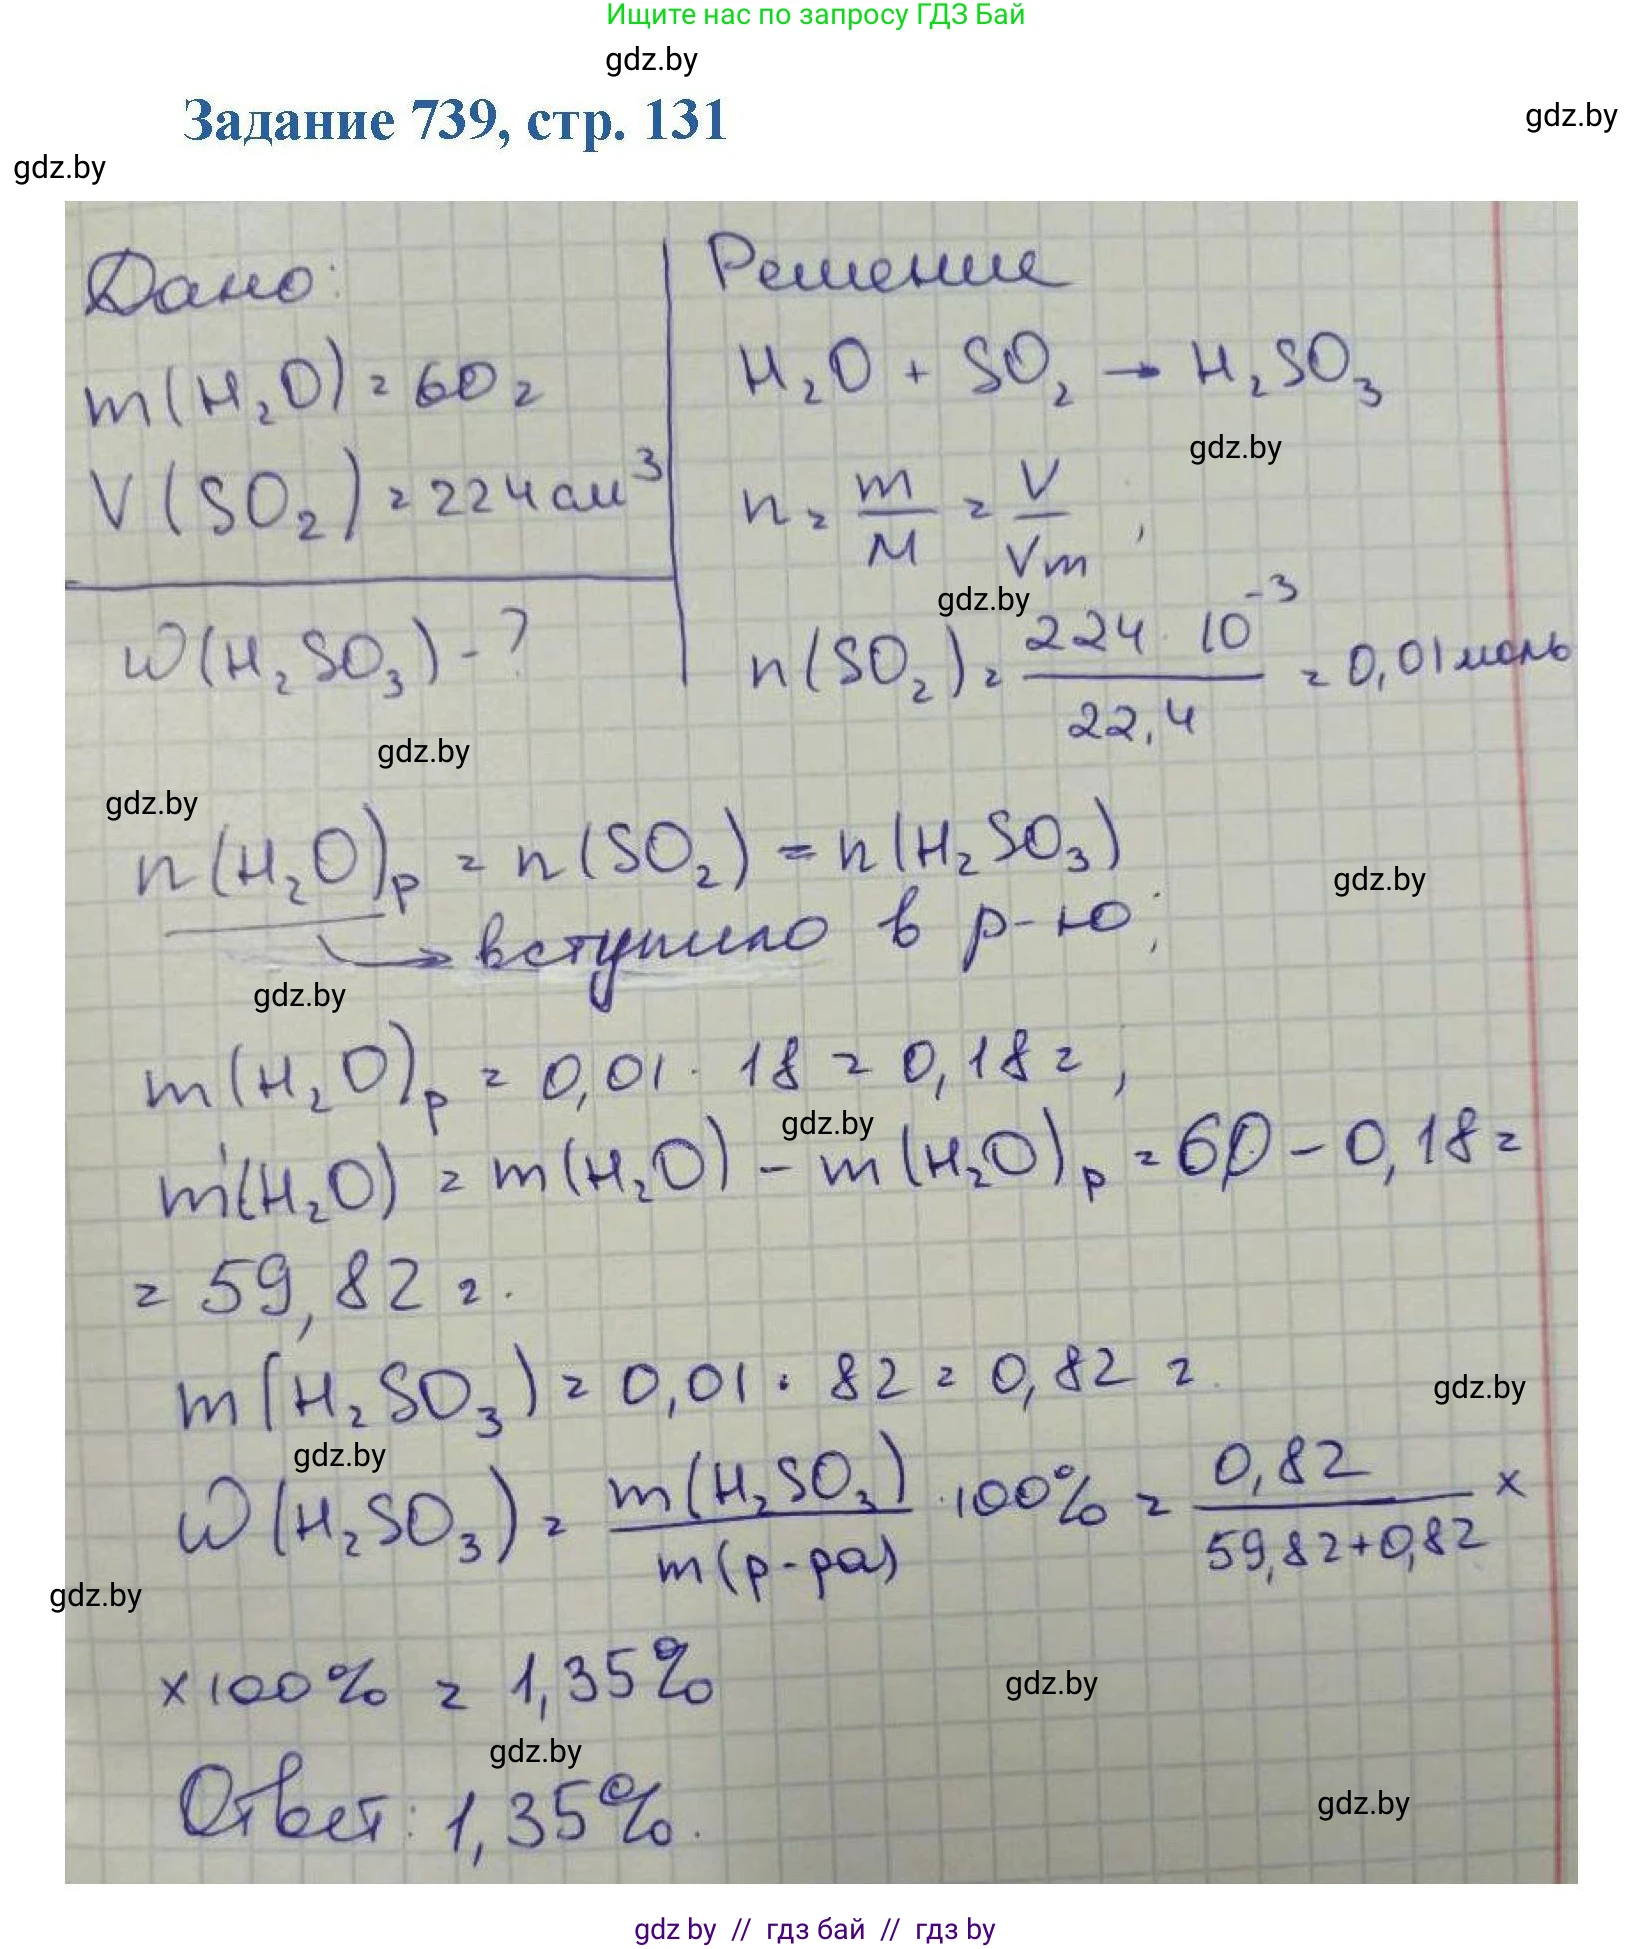 Ищите нас по запросу ГДЗ Бай
gdz.by
Задание 739, стр. 131
gdz.by
gdz.by
Дано:
m(H₂O) = 60 г
V(SO₂) = 224 см³
w(H₂SO₃) - ?
Решение
H₂O + SO₂ → H₂SO₃
gdz.by
n = m/M = V/Vm ;
gdz.by
n(SO₂) = 224 · 10⁻³ / 22,4 = 0,01 моль
gdz.by
gdz.by
n(H₂O)р = n(SO₂) = n(H₂SO₃)
gdz.by
→ вступило в р-ю;
gdz.by
m(H₂O)р = 0,01 · 18 = 0,18 г ;
gdz.by
m'(H₂O) = m(H₂O) - m(H₂O)р = 60 - 0,18 =
= 59,82 г.
m(H₂SO₃) = 0,01 · 82 = 0,82 г.
gdz.by
gdz.by
w(H₂SO₃) = m(H₂SO₃) / m(р-ра) · 100% = 0,82 / 59,82+0,82 ×
gdz.by
× 100% = 1,35%
gdz.by
gdz.by
Ответ: 1,35%.
gdz.by
gdz by // гдз бай // гдз by